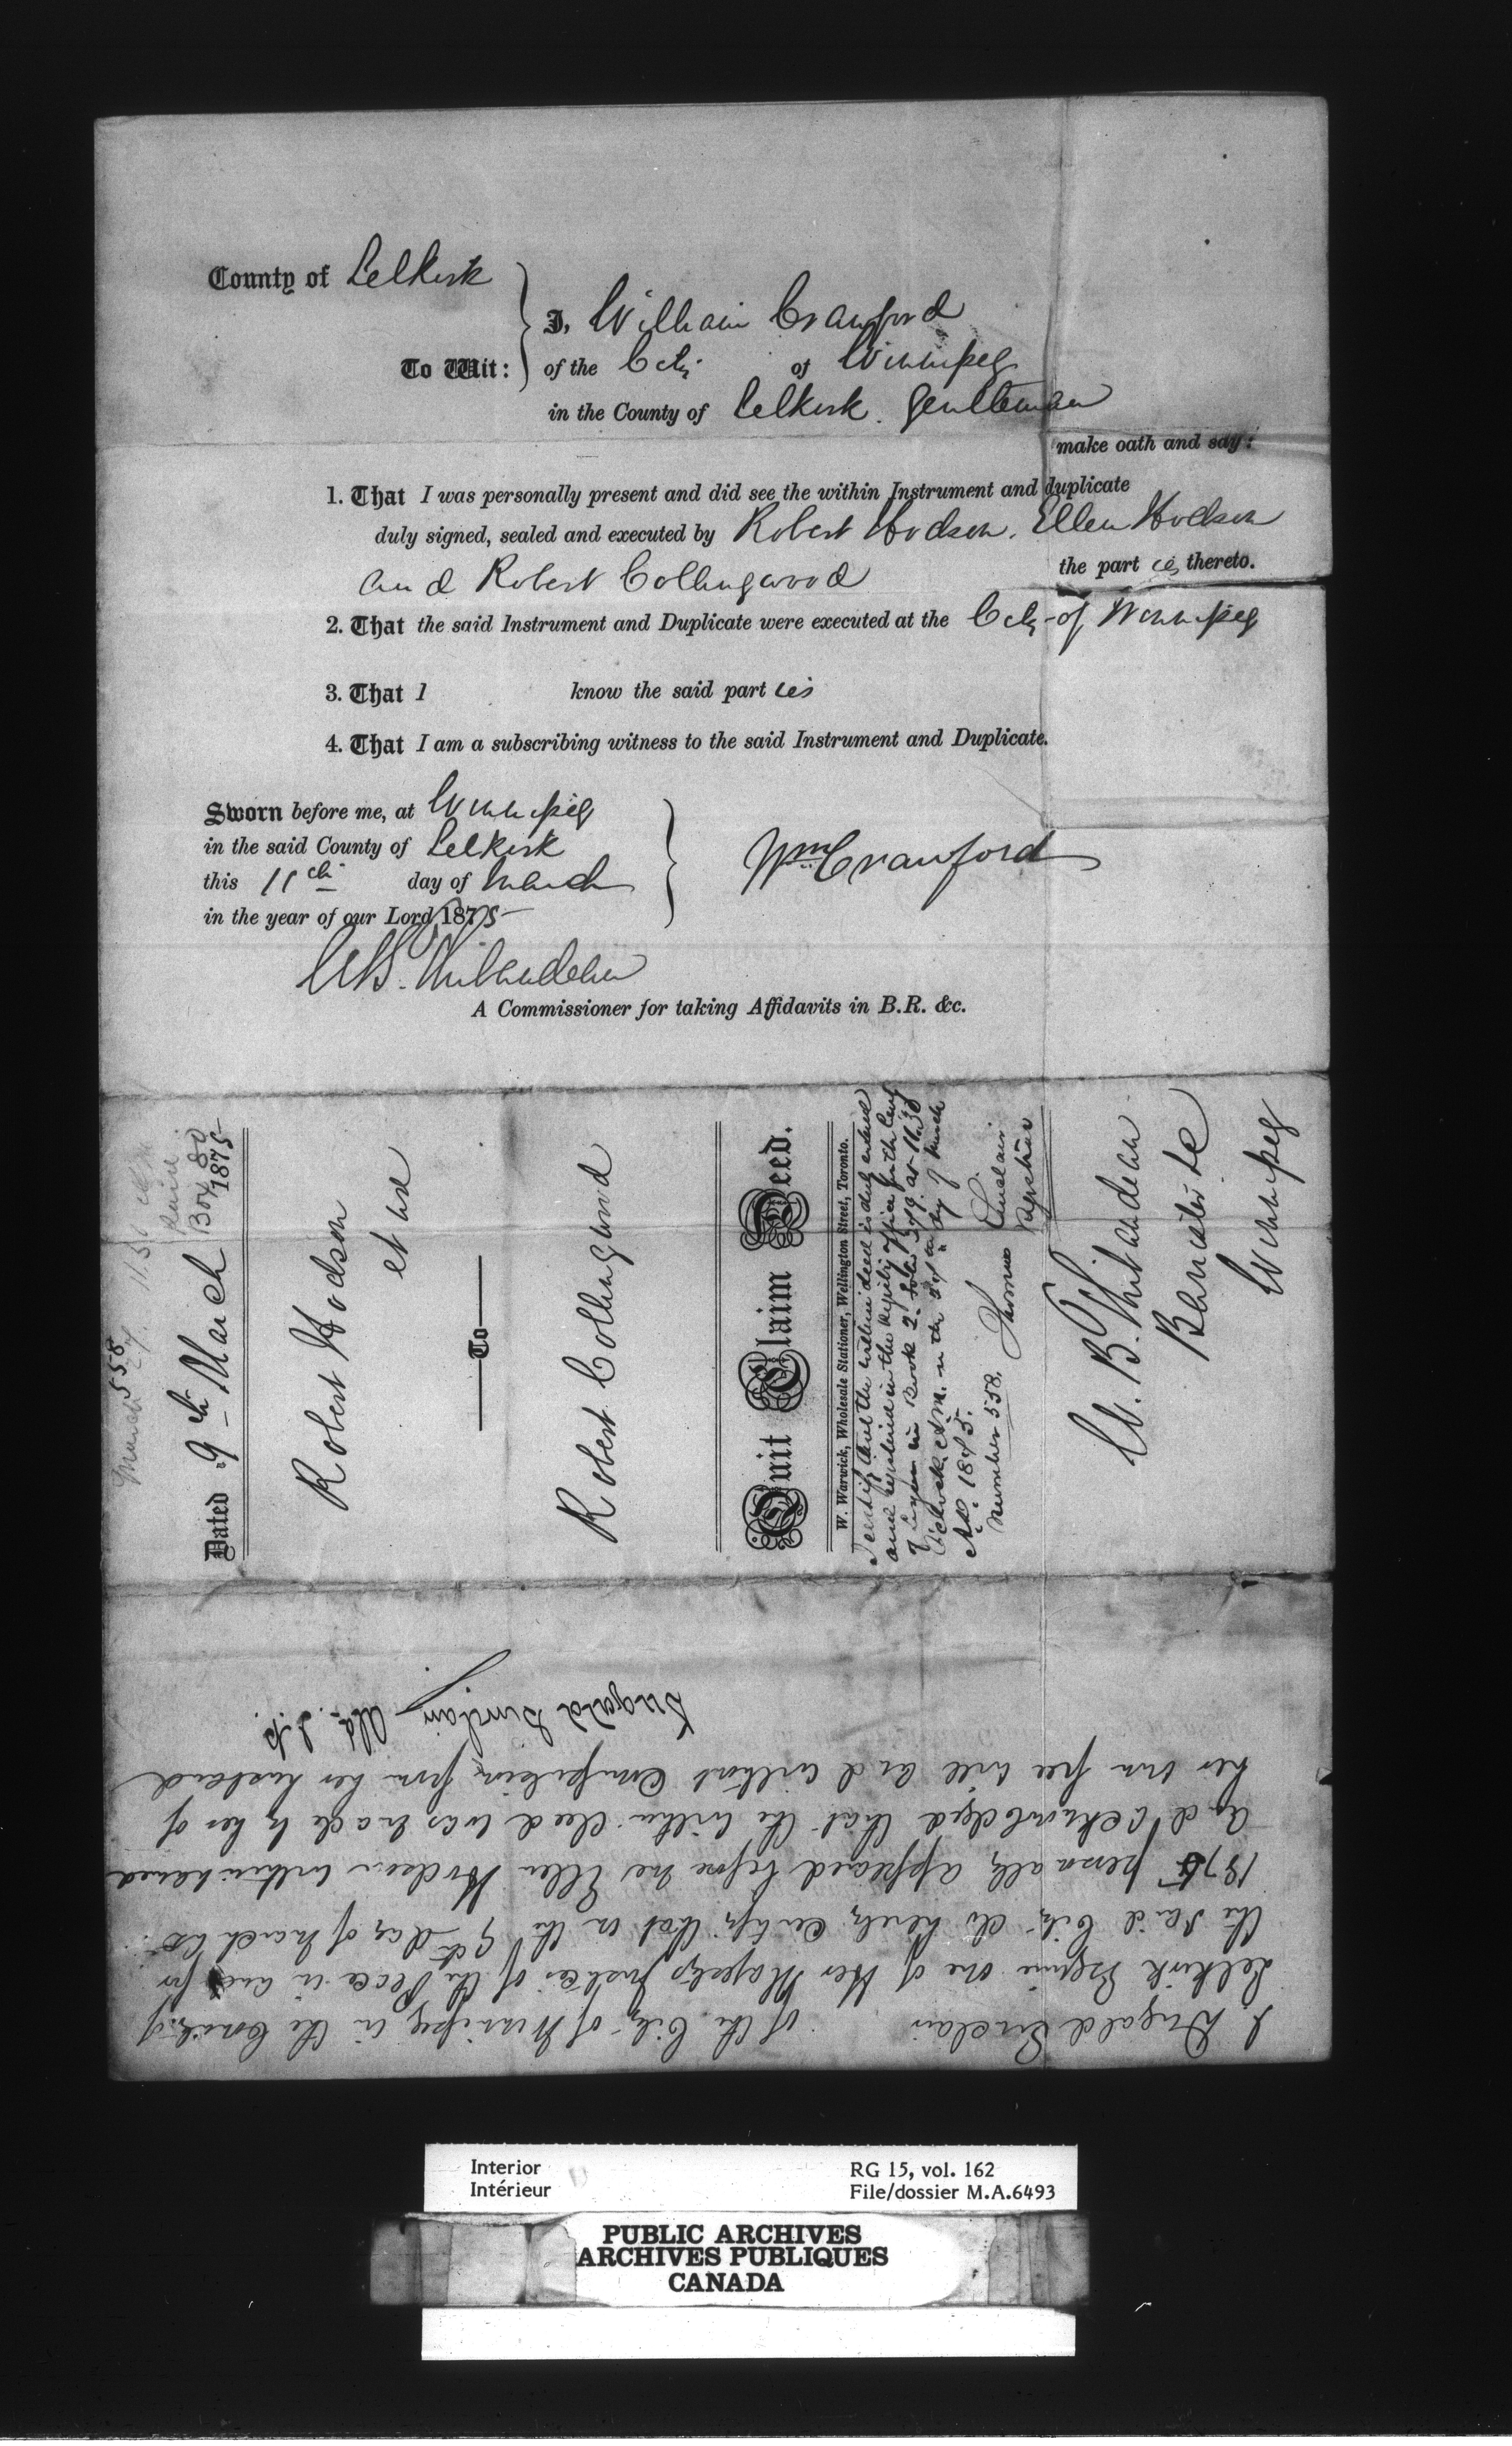 County of Selkirk
To Wit:
I, William Crawford
of the City of Winnipeg
in the County of Selkirk. Gentleman
make oath and say:
1. That I was personally present and did see the within Instrument and duplicate
duly signed, sealed and executed by Robert Hodson, Ellen Hodson
and Robert Collingwood the part ies thereto.
2. That the said Instrument and Duplicate were executed at the City of Winnipeg
3. That I know the said part ies
4. That I am a subscribing witness to the said Instrument and Duplicate.
Sworn before me, at Winnipeg
in the said County of Selkirk
this 11th day of March
in the year of our Lord 1875
Wm Crawford
W.B. Thibaudeau
A Commissioner for taking Affidavits in B.R. &c.
558
March 27.
Box 80
Dated 9th March 1875
Robert Hodson
et ux
To
Robert Collingwood
Quit Claim Deed.
W. Warwick, Wholesale Stationer, Wellington Street, Toronto.
I certify that the within deed is duly entered
and registered in the Registry office for the County
of Lisgar in Book 2. folio at 11.30
O'clock A.M. on the 27th day of March
A.D. 1875.
Number 558. Thomas Sinclair
Registrar
W. B. Thibaudeau
Barrister &c
Winnipeg
I Dugald Sinclair of the City of Winnipeg in the County of
Selkirk Esquire one of Her Majestys Justices of the Peace in and for
the said City do hereby certify that on the 9th day of March AD
1875 personally appeared before me Ellen Hodson within named
and acknowledged that the within deed was made by her of
her own free will and without Compulsion from her husband
Dugald Sinclair J.P.
Interior
Intérieur
RG 15, vol. 162
File/dossier M.A.6493
PUBLIC ARCHIVES
ARCHIVES PUBLIQUES
CANADA